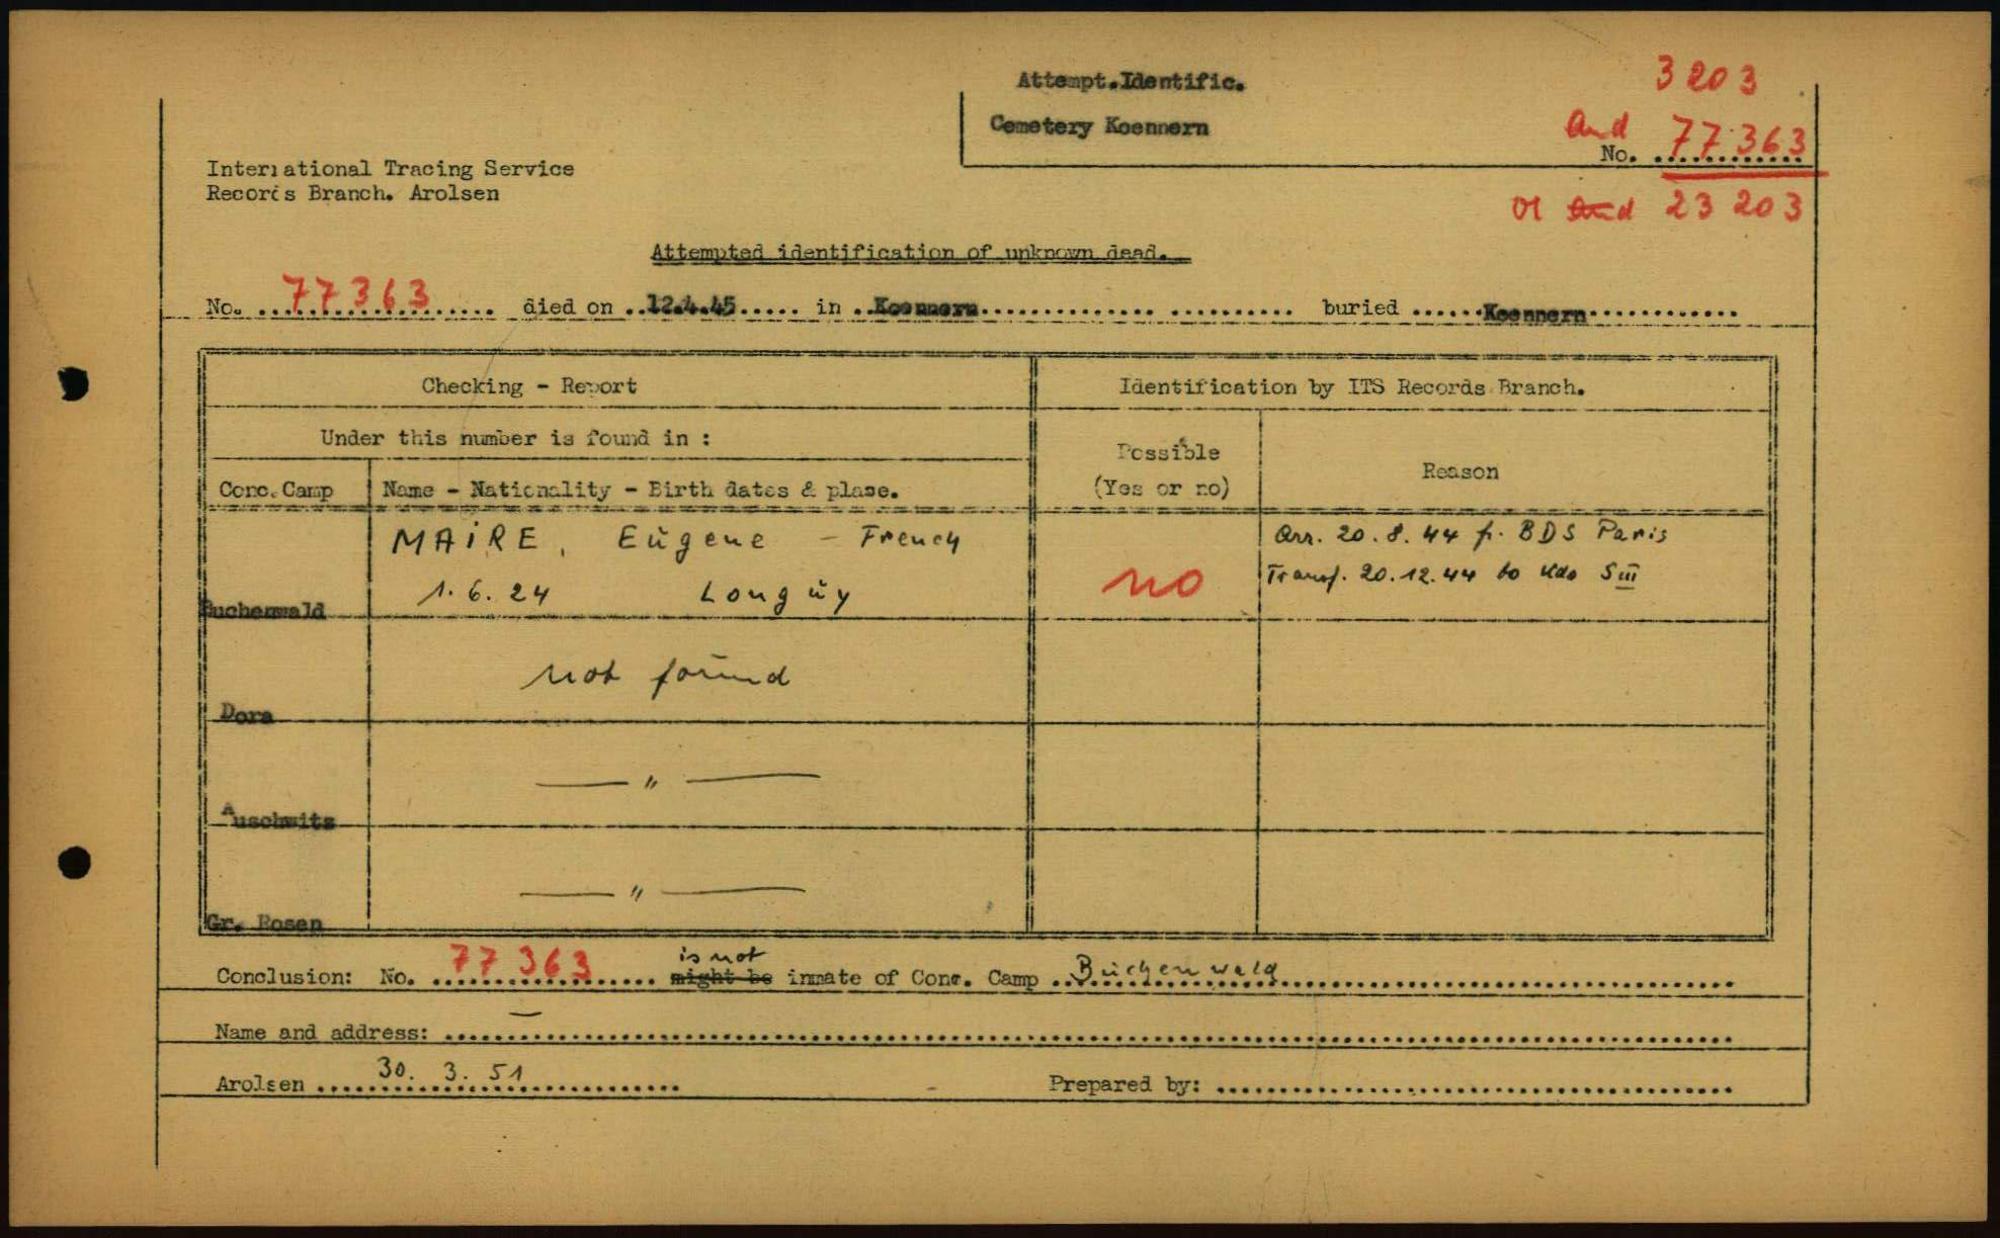 Attempt.Identific.
3 203
Cemetery Koennern
and
No. 77363
International Tracing Service
Records Branch. Arolsen
or and 23 203
Attempted identification of unknown dead.
No. 77363 died on 12.4.45 in Koennern buried Koennern
Checking - Report
Identification by ITS Records Branch.
Under this number is found in :
Possible
(Yes or no)
Reason
Conc.Camp
Name - Nationality - Birth dates & plase.
MAIRE, Eugene - French
1.6.24 Longuy
Buchenwald
no
Arr. 20.8.44 fr. BDS Paris
Transf. 20.12.44 to Kdo SIII
not found
Dora
— " —
Auschwitz
— " —
Gr. Rosen
is not
Conclusion: No. 77363 might be inmate of Conc. Camp Buchenwald
Name and address: —
Arolsen 30. 3. 51
Prepared by: